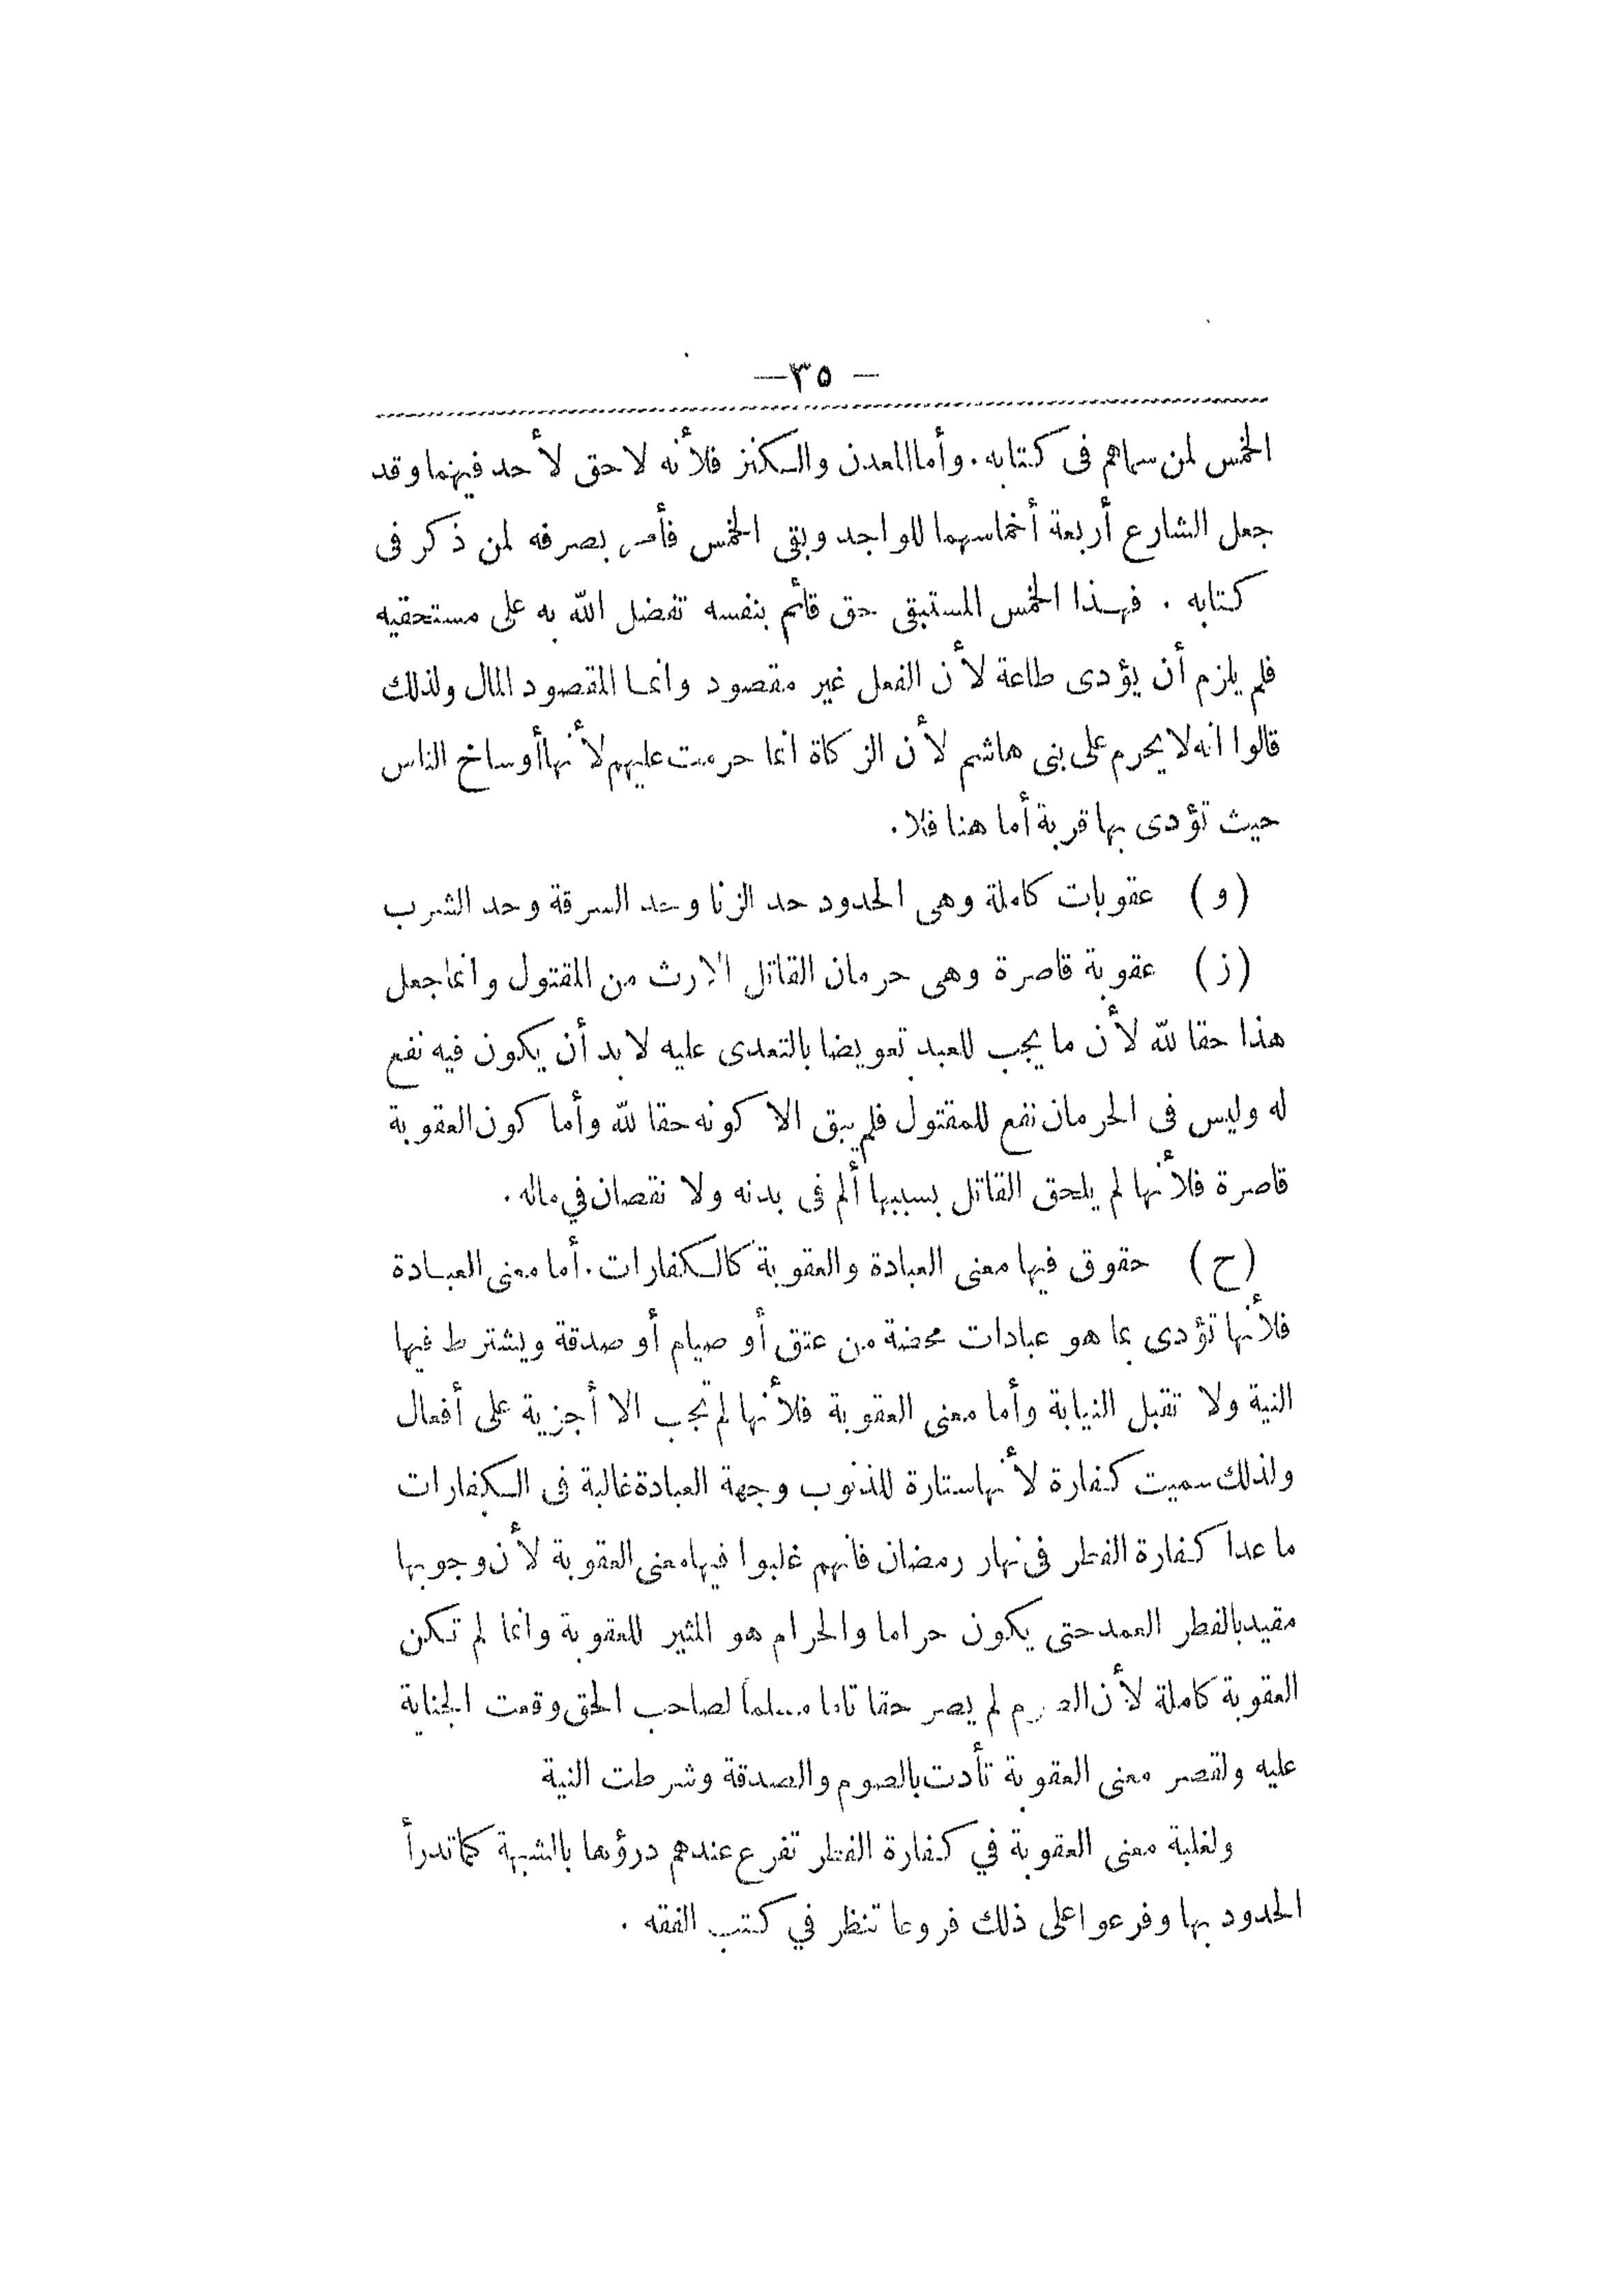 — ٣٥ —
الخمس لمن سماهم فى كتابه. وأما المعدن والكنز فلأنه لا حق لأحد فيهما وقد
جعل الشارع أربعة أخماسهما للواجد وبقى الخمس فأمر بصرفه لمن ذكر فى
كتابه . فهذا الخمس المستبقى حق قائم بنفسه تفضل الله به على مستحقيه
فلم يلزم أن يؤدى طاعة لأن الفعل غير مقصود وانما المقصود المال ولذلك
قالوا انه لا يحرم على بنى هاشم لأن الزكاة انما حرمت عليهم لأنها أوساخ الناس
حيث تؤدى بها قربة أما هنا فلا .
(و) عقوبات كاملة وهى الحدود حد الزنا وحد السرقة وحد الشرب
(ز) عقوبة قاصرة وهى حرمان القاتل الارث من المقتول وانما جعل
هذا حقا لله لأن ما يجب للعبد تعويضا بالتعدى عليه لا بد أن يكون فيه نفع
له وليس فى الحرمان نفع للمقتول فلم يبق الا كونه حقا لله وأما كون العقوبة
قاصرة فلأنها لم يلحق القاتل بسببها ألم فى بدنه ولا نقصان في ماله .
(ح) حقوق فيها معنى العبادة والعقوبة كالكفارات. أما معنى العبادة
فلأنها تؤدى بما هو عبادات محضة من عتق أو صيام أو صدقة ويشترط فيها
النية ولا تقبل النيابة وأما معنى العقوبة فلأنها لم تجب الا أجزية على أفعال
ولذلك سميت كفارة لأنها ستارة للذنوب وجهة العبادة غالبة فى الكفارات
ما عدا كفارة الفطر فى نهار رمضان فانهم غلبوا فيها معنى العقوبة لأن وجوبها
مقيد بالفطر العمد حتى يكون حراما والحرام هو المثير للعقوبة وانما لم تكن
العقوبة كاملة لأن لم يصر حقا تاما مسلما لصاحب الحق وقعت الجناية
عليه ولقصر معنى العقوبة تأدت بالصوم والصدقة وشرطت النية
ولغلبة معنى العقوبة في كفارة الفطر تفرع عندهم درؤها بالشبهة كما تدرأ
الحدود بها وفرعوا على ذلك فروعا تنظر في كتب الفقه .